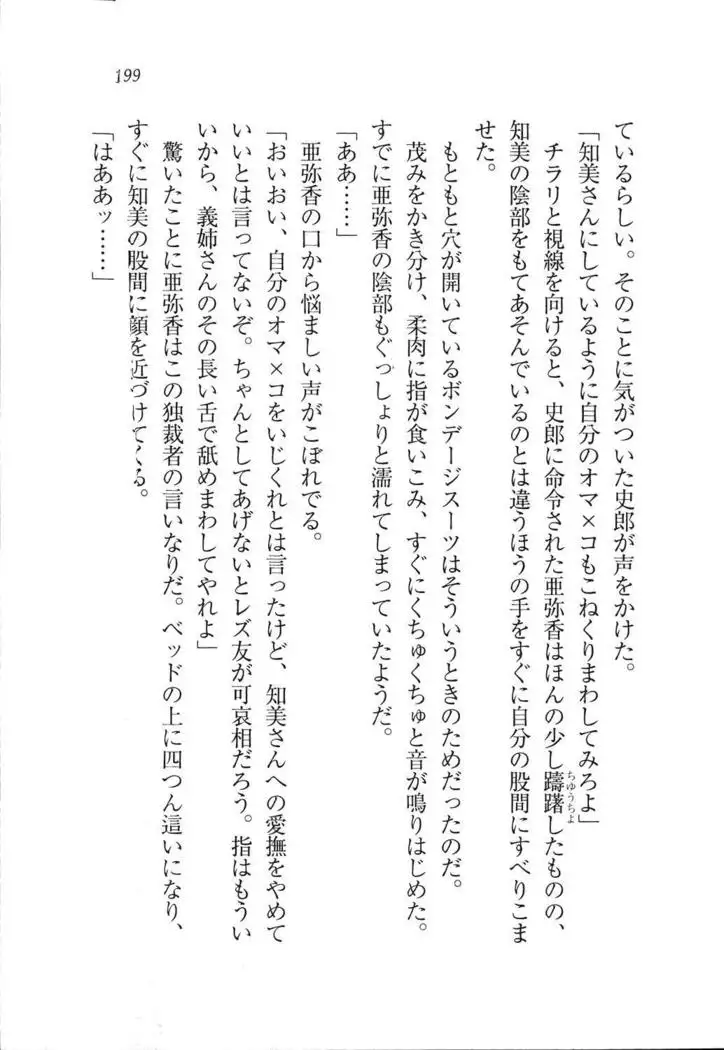 199
ているらしい。そのことに気がついた史郎が声をかけた。
「知美さんにしているように自分のオマ×コもこねくりまわしてみろよ」
チラリと視線を向けると、史郎に命令された亜弥香はほんの少し躊躇したものの、
ちゅうちょ
知美の陰部をもてあそんでいるのとは違うほうの手をすぐに自分の股間にすべりこま
せた。
もともと穴が開いているボンデージスーツはそういうときのためだったのだ。
茂みをかき分け、柔肉に指が食いこみ、すぐにくちゅくちゅと音が鳴りはじめた。
すでに亜弥香の陰部もぐっしょりと濡れてしまっていたようだ。
「ああ……」
亜弥香の口から悩ましい声がこぼれでる。
「おいおい、自分のオマ×コをいじくれとは言ったけど、知美さんへの愛撫をやめて
いいとは言ってないぞ。ちゃんとしてあげないとレズ友が可哀相だろう。指はもうい
いから、義姉さんのその長い舌で舐めまわしてやれよ」
驚いたことに亜弥香はこの独裁者の言いなりだ。ベッドの上に四つん這いになり、
すぐに知美の股間に顔を近づけてくる。
「はああッ……」